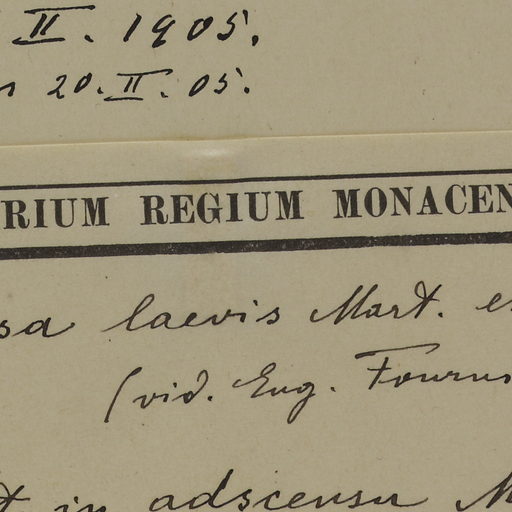 II. 1905.
20. II. 05.
RIUM REGIUM MONACEN
sa laevis Mart. e
(vid. Eug. Fourn
in adscensu M